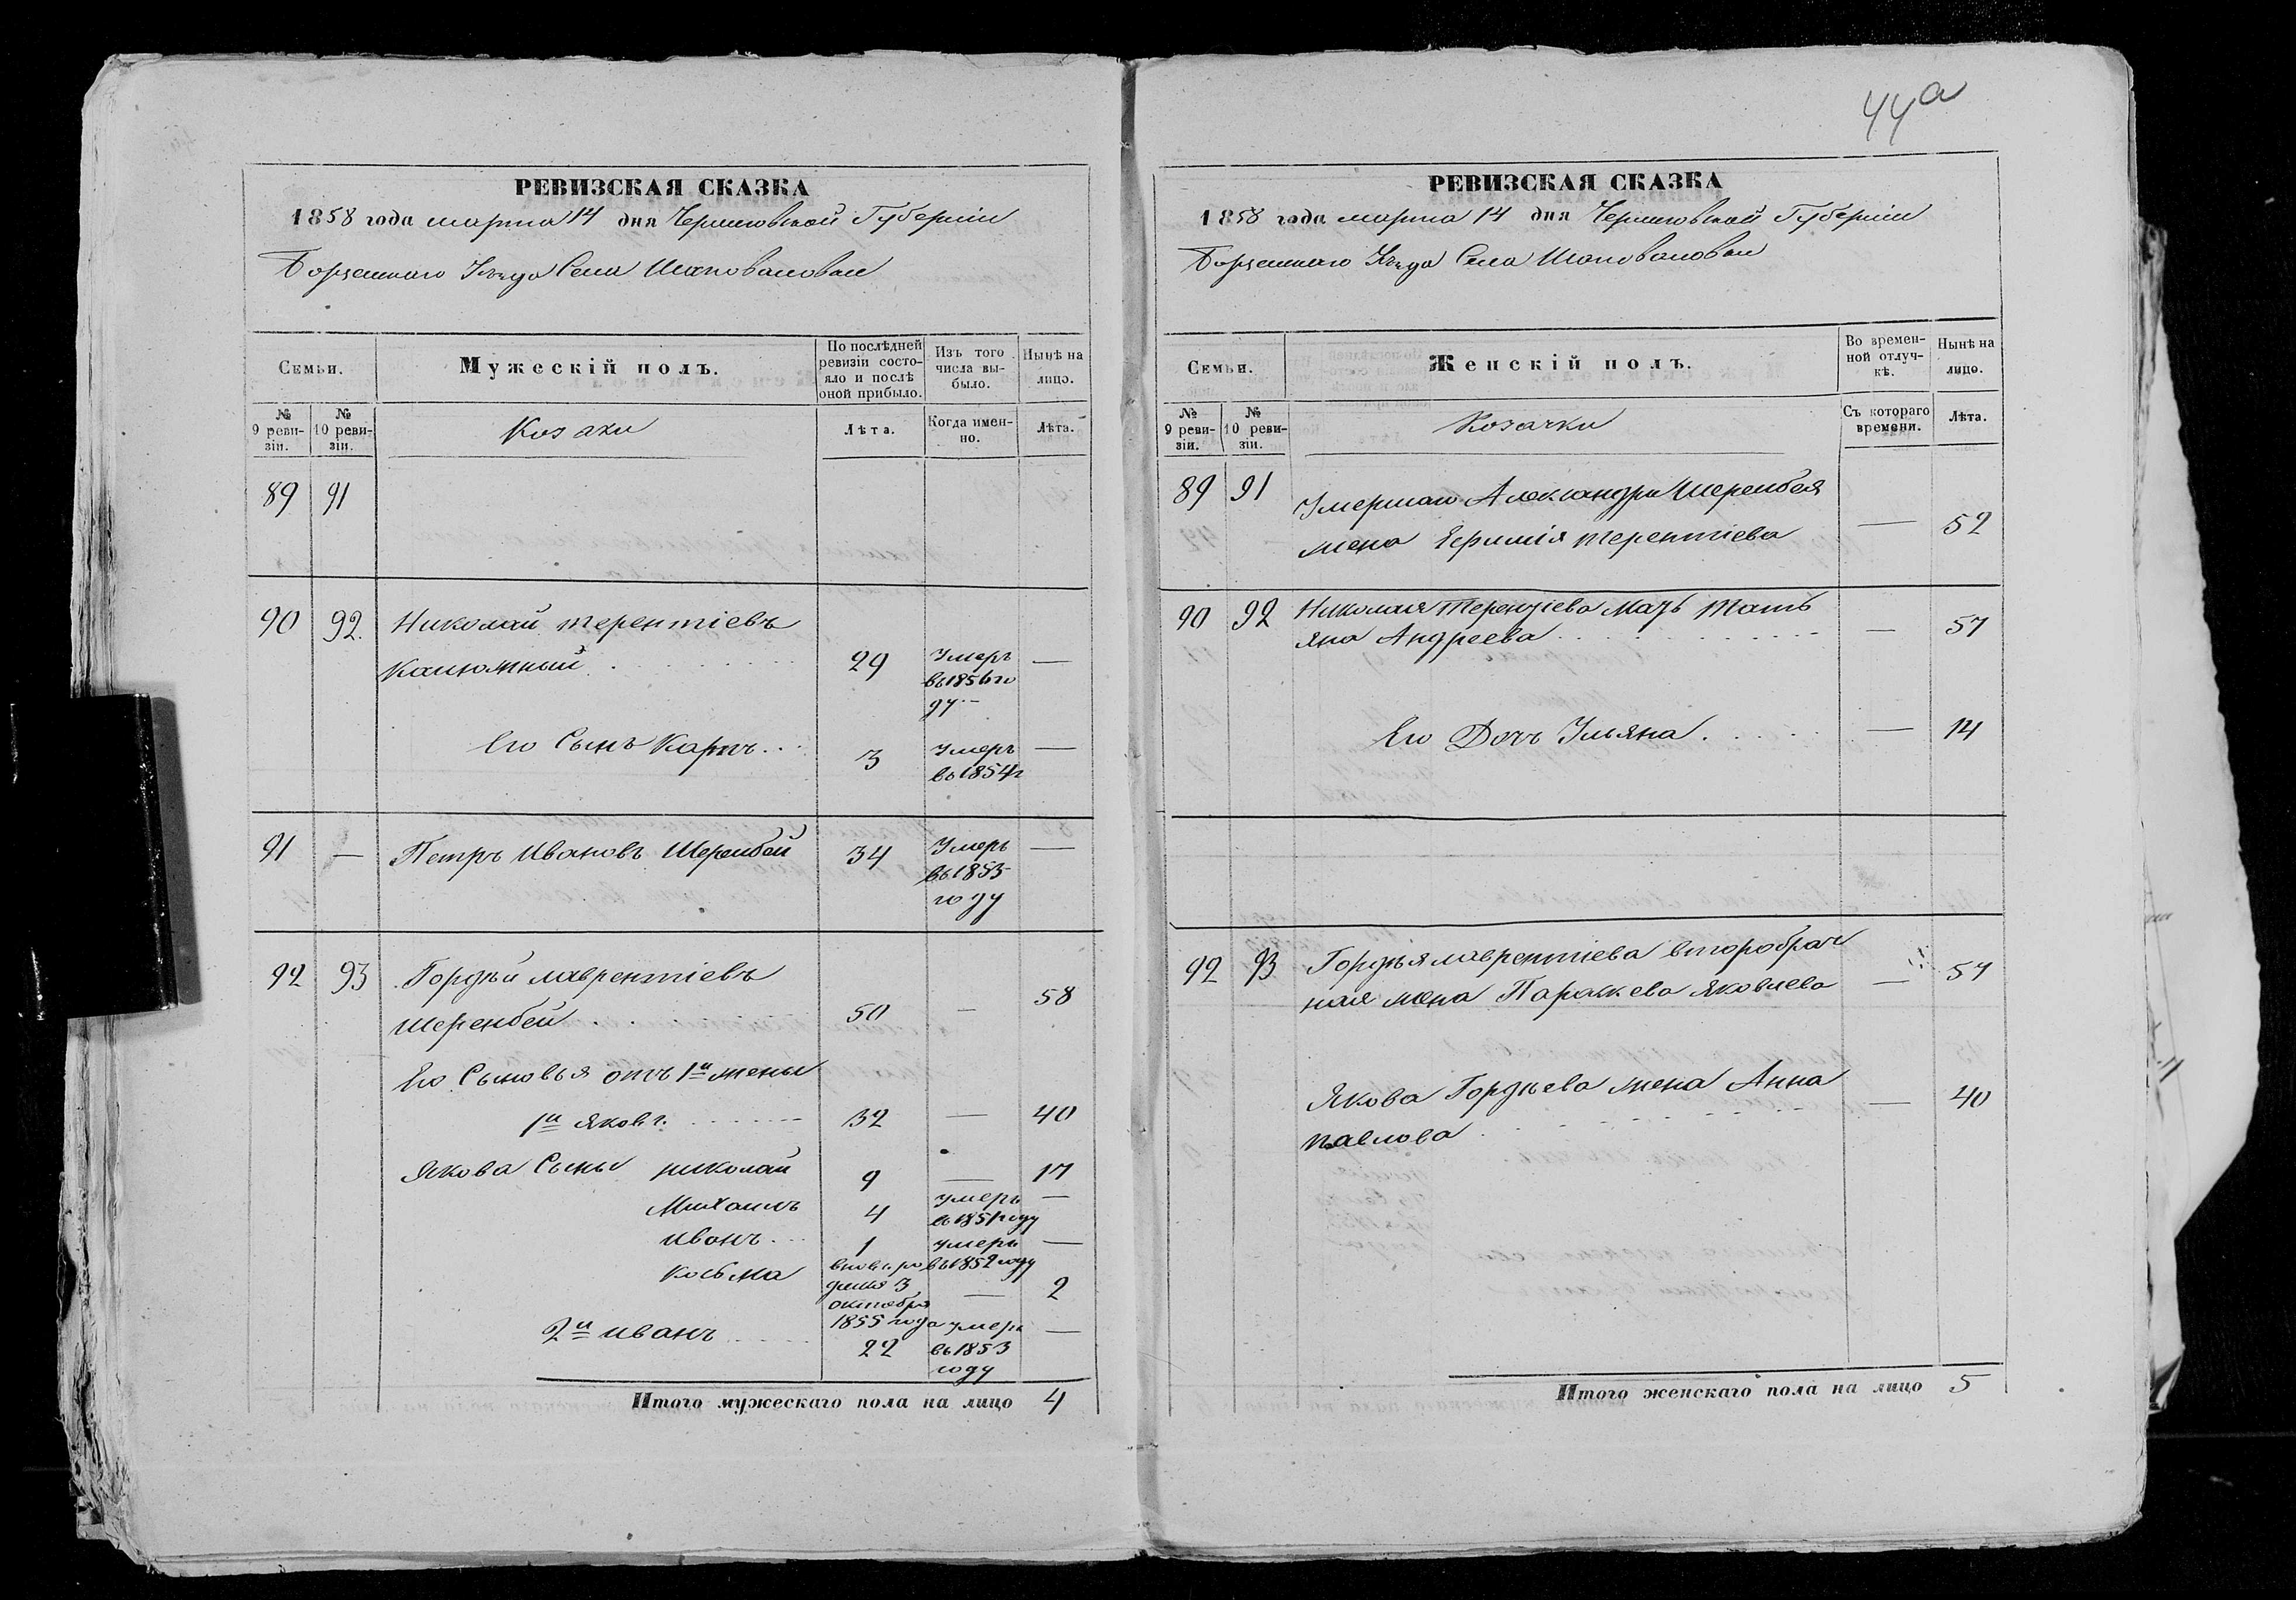 44а
РЕВИЗСКАЯ СКАЗКА
1858 года марта 14 дня Черниговской Губернiи
Борзенскаго Уѣзда Села Шаповаловки
Семьи.
Мужескiй полъ.
По послѣдней ревизiи состо-
яло и послѣ
оной прибыло.
Изъ того
числа вы-
было.
Нынѣ на
лицо.
№
9 реви-
зiи.
№
10 реви-
зiи.
Козаки
Лѣта.
Когда имен-
но.
Лѣта.
89 91
90 92. Николай терентiевъ
29 Умеръ —
въ 1856 го
ду
Его Сынъ Карпъ 3 Умеръ —
въ 1854 г
91 — Петръ Ивановъ Шеренбей 34 Умеръ —
въ 1855
году
92 93 Гордѣй лаврентiевъ
Шеренбей 50 — 58
Его Сыновья отъ 1й жены
1й Яковъ 32 — 40
Якова Сыны николай 9 — 17
Михаилъ 4 умеръ —
въ 1851 году
иванъ 1 умеръ —
въ 1852 году
Косьма вновь ро
3
октября
1855 года — 2
2й иванъ 22 умеръ —
въ 1853
году
Итого мужескаго пола на лицо 4
РЕВИЗСКАЯ СКАЗКА
1858 года марта 14 дня Черниговской Губернiи
Борзенскаго Уѣзда Села Шаповаловки
Семьи.
Женскiй полъ.
Во времен-
ной отлуч-
кѣ.
Нынѣ на
лицо.
№
9 реви-
зiи.
№
10 реви-
зiи.
Козачки
Съ котораго
времени.
Лѣта.
89 91 Умершаго Александра Шеренбея
жена терентiева — 52
90 92 Николая Терентiева мать Тать
яна Андреева — 57
Его Дочь Ульяна — 14
92 93 Гордѣя лаврентiева второбрач
ная жена Параскева Яковлева — 57
Якова Гордѣева жена Анна
павлова — 40
Итого женскаго пола на лицо 5